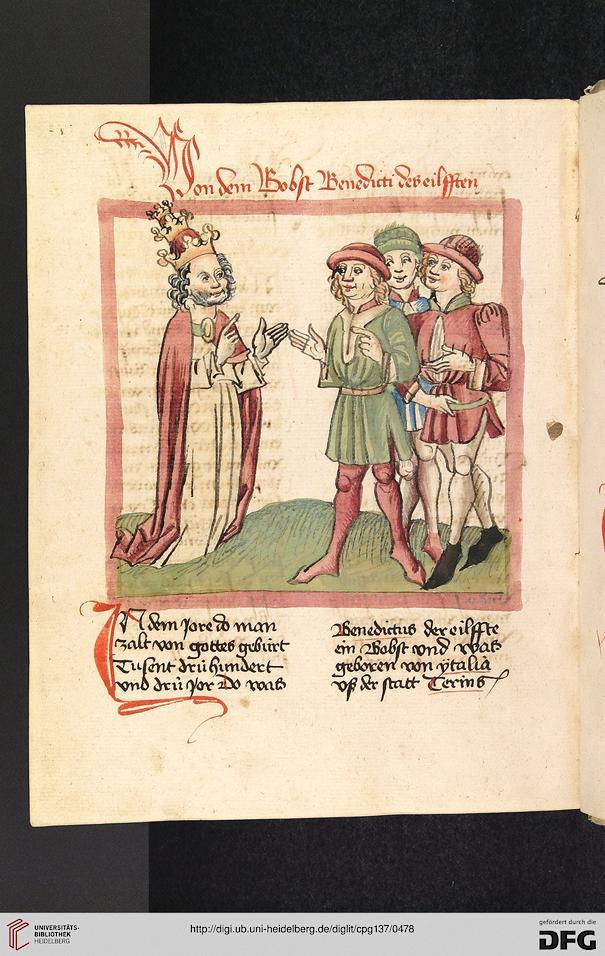 Von dem Bobst Benedicti des eilfften
IN dem Jore do man
zalt von gottes gebürt
Tusent drü hundert
vnd drü jor Do was
Benedictus der eilffte
ein Bobst vnd was
geboren von ÿtalia
vß der statt Terins
UNIVERSITÄTS-
BIBLIOTHEK
HEIDELBERG
http://digi.ub.uni-heidelberg.de/diglit/cpg137/0478
gefördert durch die
DFG